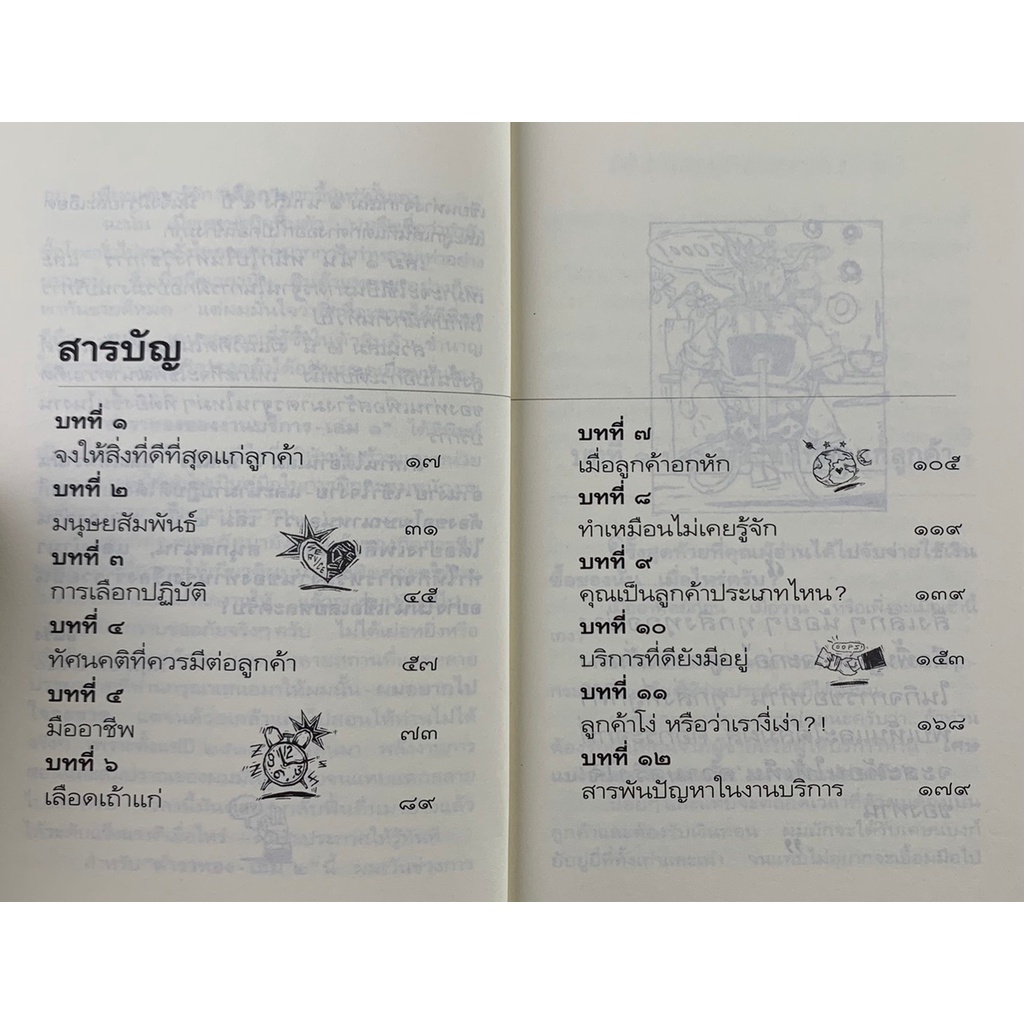 สารบัญ
บทที่ ๑
จงให้สิ่งที่ดีที่สุดแก่ลูกค้า ๑๗
บทที่ ๒
มนุษยสัมพันธ์ ๓๑
บทที่ ๓
การเลือกปฏิบัติ ๔๕
บทที่ ๔
ทัศนคติที่ควรมีต่อลูกค้า ๕๗
บทที่ ๕
มืออาชีพ ๗๓
บทที่ ๖
เลือดเถ้าแก่ ๘๙
บทที่ ๗
เมื่อลูกค้าอกหัก ๑๐๕
บทที่ ๘
ทำเหมือนไม่เคยรู้จัก ๑๑๙
บทที่ ๙
คุณเป็นลูกค้าประเภทไหน? ๑๓๙
บทที่ ๑๐
บริการที่ดียังมีอยู่ ๑๕๓
บทที่ ๑๑
ลูกค้าโง่ หรือว่าเรางี่เง่า?! ๑๖๘
บทที่ ๑๒
สารพันปัญหาในงานบริการ ๑๗๙